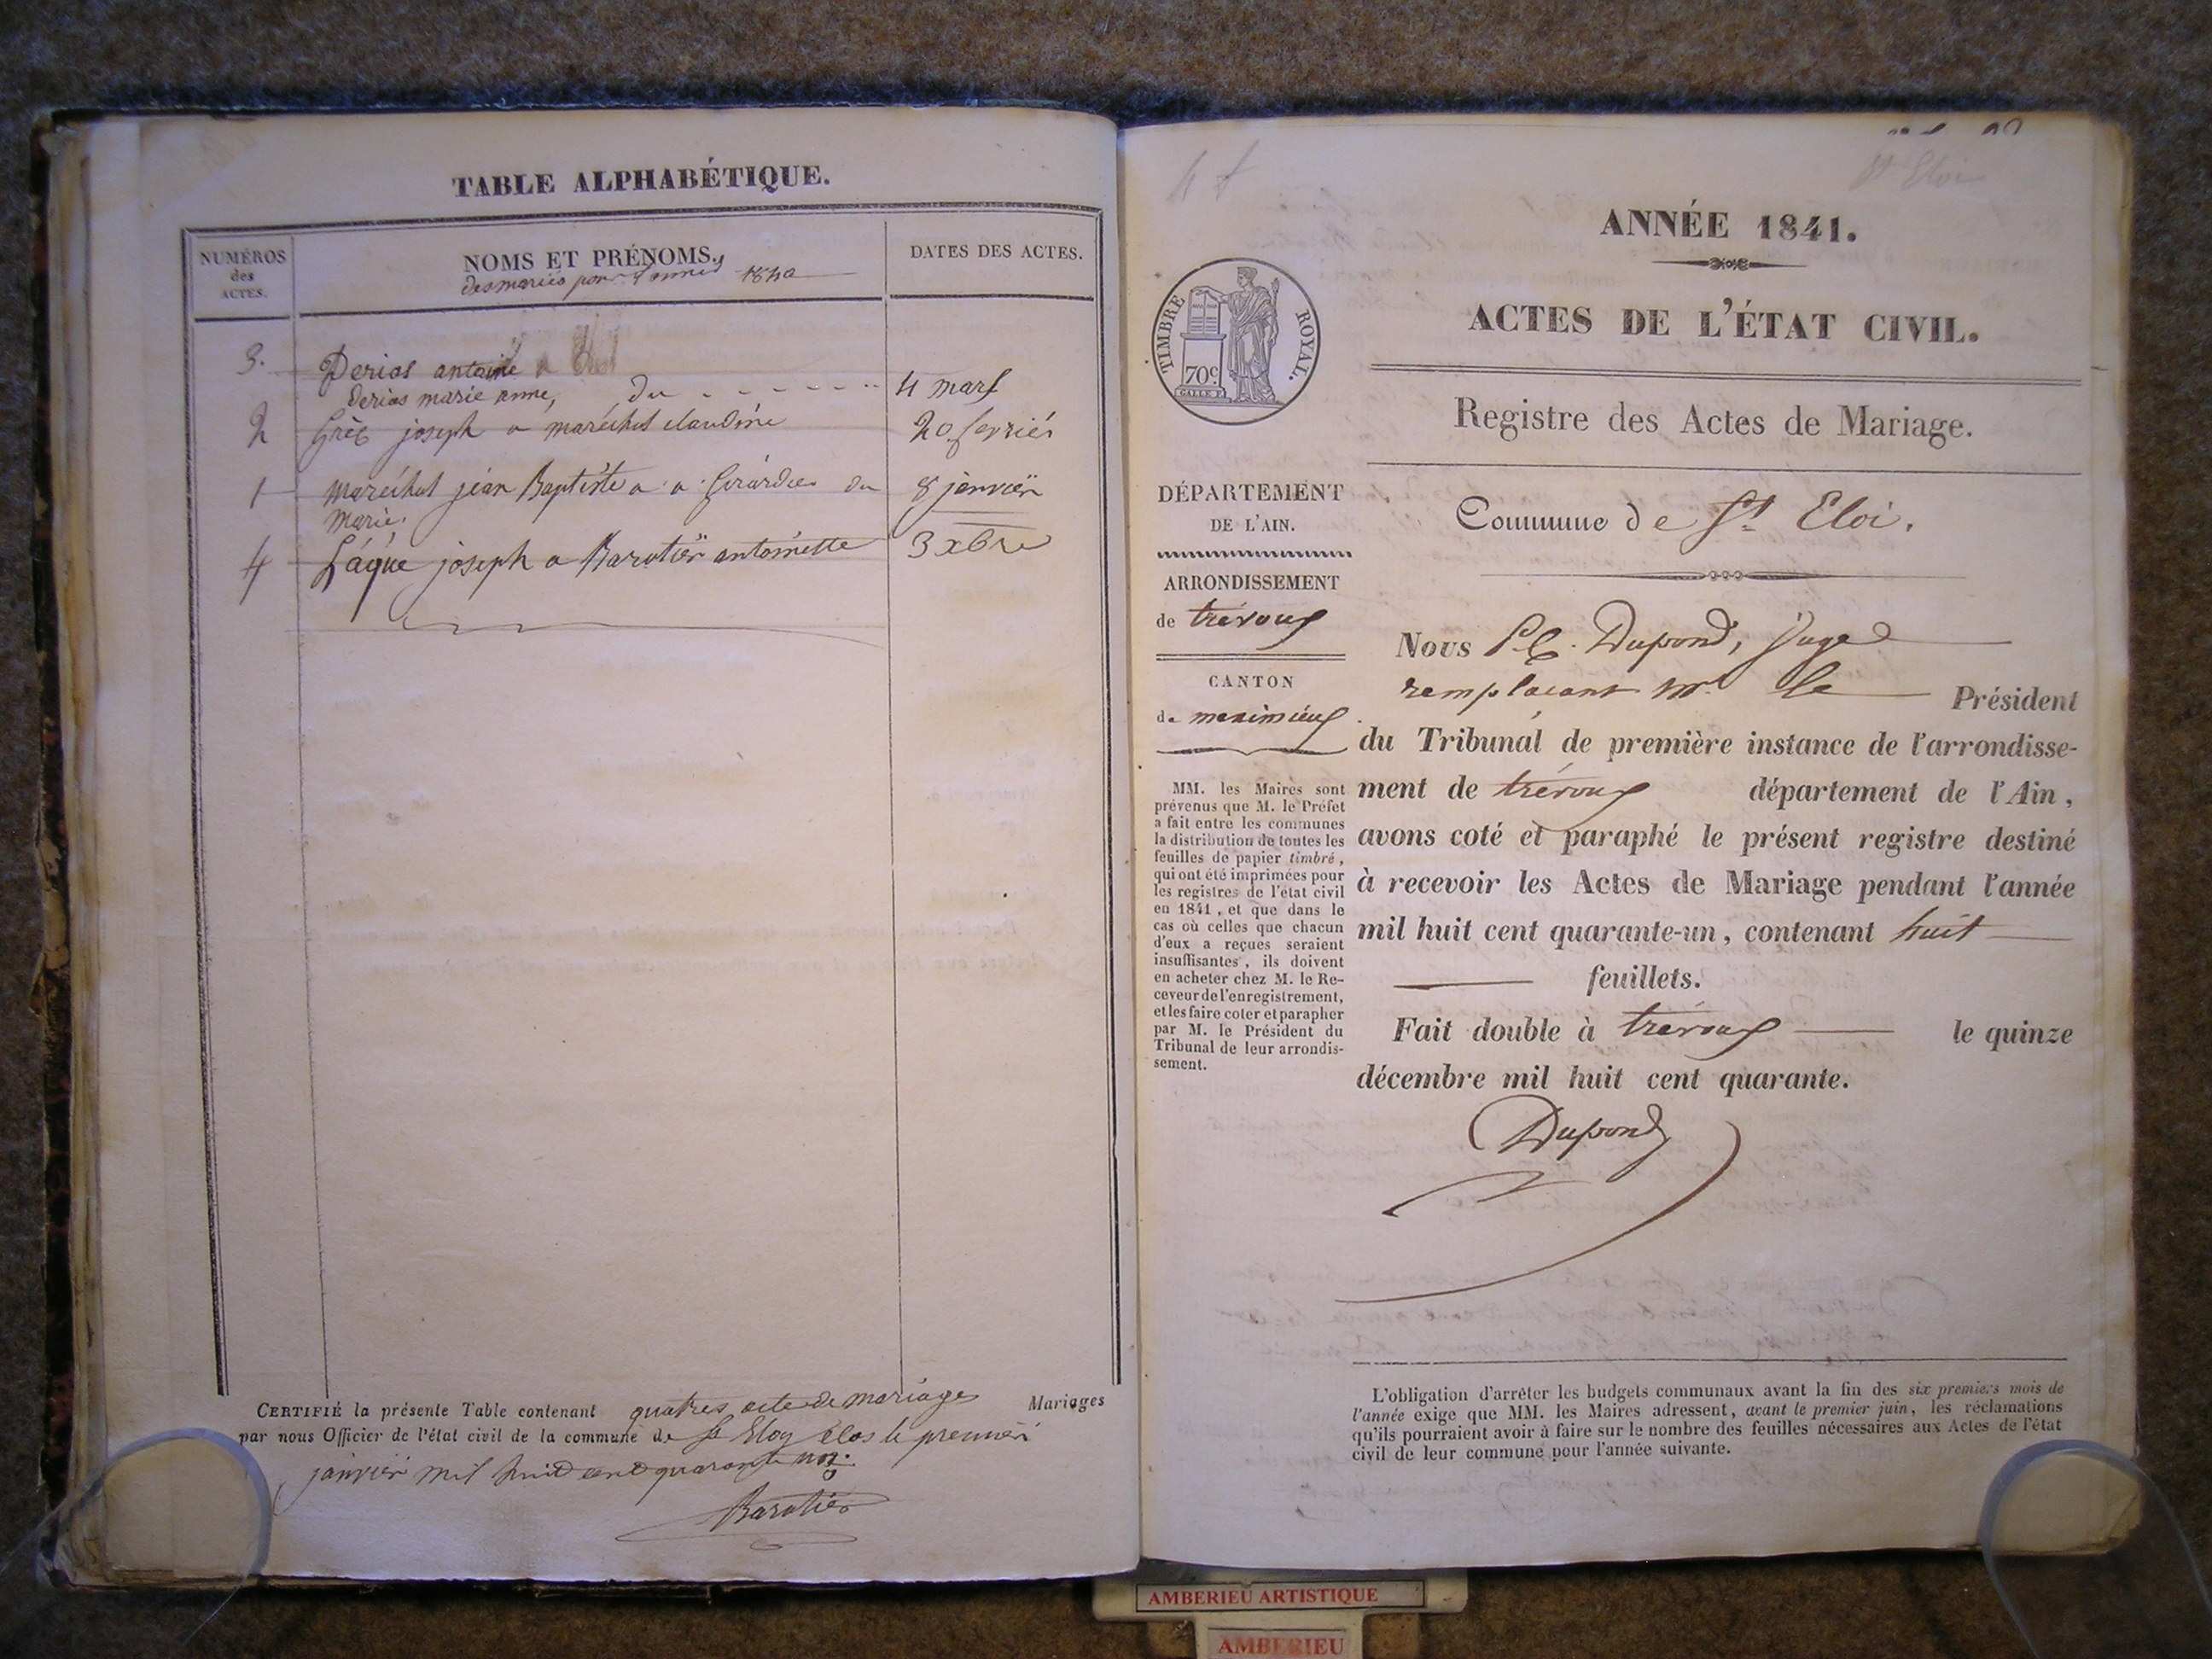 TABLE ALPHABÉTIQUE.
NUMÉROS
des
ACTES.
NOMS ET PRÉNOMS.
des mariés pour l'année 1840
DATES DES ACTES.
3. Derias antoine a
derias marie anne, du - - - - - - - 4 mars
2 joseph a maréchal claudine 20 fevrier
1 maréchal jean Baptiste a du 8 janvier
marie.
4 joseph a Barotier antoinette 3 xbre
CERTIFIÉ la présente Table contenant quatres acte de mariages Mariages
par nous Officier de l'état civil de la commune de St Eloy clos le premier
janvier mil huit cent quarante un.
Barotier
St Eloi
ANNÉE 1841.
ACTES DE L'ÉTAT CIVIL.
TIMBRE ROYAL.
70c
Registre des Actes de Mariage.
DÉPARTEMENT
DE L'AIN.
ARRONDISSEMENT
de trévoux
CANTON
de meximieux
MM. les Maires sont
prévenus que M. le Préfet
a fait entre les communes
la distribution de toutes les
feuilles de papier timbré,
qui ont été imprimées pour
les registres de l'état civil
en 1841, et que dans le
cas où celles que chacun
d'eux a reçues seraient
insuffisantes, ils doivent
en acheter chez M. le Re-
ceveur de l'enregistrement,
et les faire coter et parapher
par M. le Président du
Tribunal de leur arrondis-
sement.
Commune de St Eloi.
Nous Dupond, Juge
remplacant Mr le Président
du Tribunal de première instance de l'arrondisse-
ment de trévoux département de l'Ain,
avons coté et paraphé le présent registre destiné
à recevoir les Actes de Mariage pendant l'année
mil huit cent quarante-un, contenant huit
feuillets.
Fait double à trévoux le quinze
décembre mil huit cent quarante.
Dupond
L'obligation d'arrêter les budgets communaux avant la fin des six premiers mois de
l'année exige que MM. les Maires adressent, avant le premier juin, les réclamations
qu'ils pourraient avoir à faire sur le nombre des feuilles nécessaires aux Actes de l'état
civil de leur commune pour l'année suivante.
AMBERIEU ARTISTIQUE
AMBERIEU